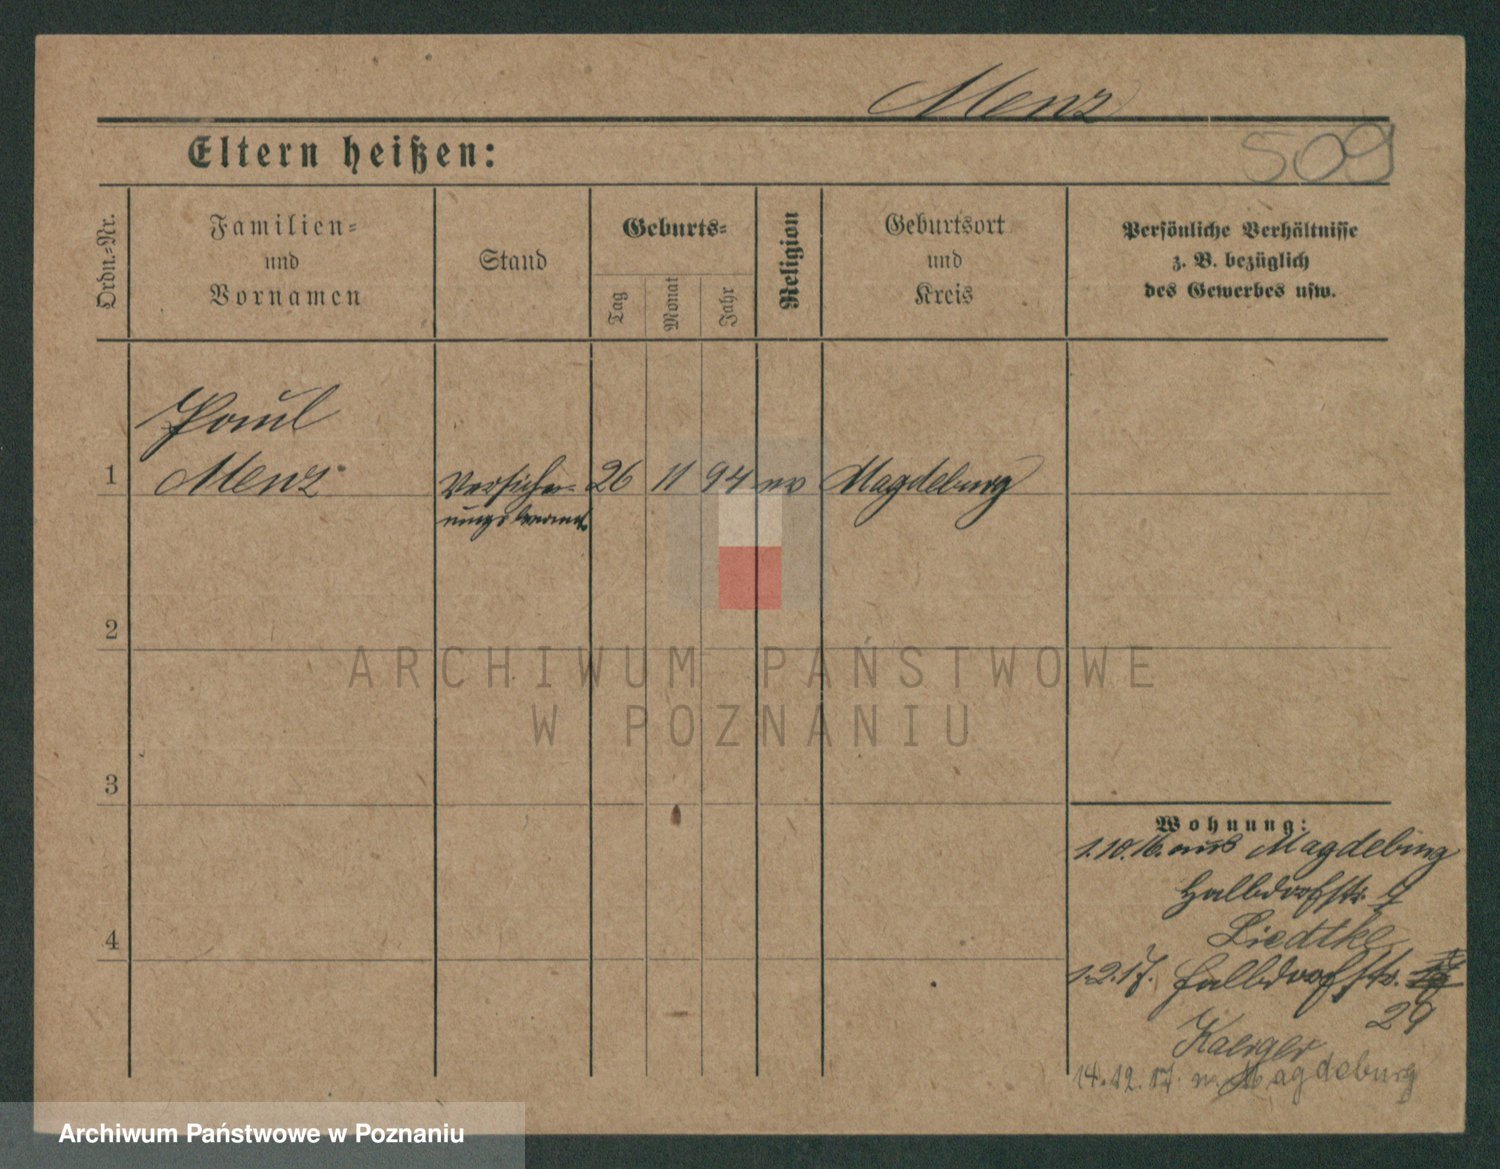 Menz
509
Eltern heißen:
Ordn.-Nr.
Familien-
und
Vornamen
Stand
Geburts-
Tag
Monat
Jahr
Religion
Geburtsort
und
Kreis
Persönliche Verhältnisse
z. B. bezüglich
des Gewerbes usw.
Paul
1 Menz Versicher- 26 11 94 ev Magdeburg
ungsbeamt.
2
ARCHIWUM PAŃSTWOWE
W POZNANIU
3
Wohnung:
1.10.16. aus Magdeburg
Halbdorfstr. 7
Liedtke
4
1.2.17. Halbdorfstr.
29
Kaerger
14.12.17. n. Magdeburg
Archiwum Państwowe w Poznaniu